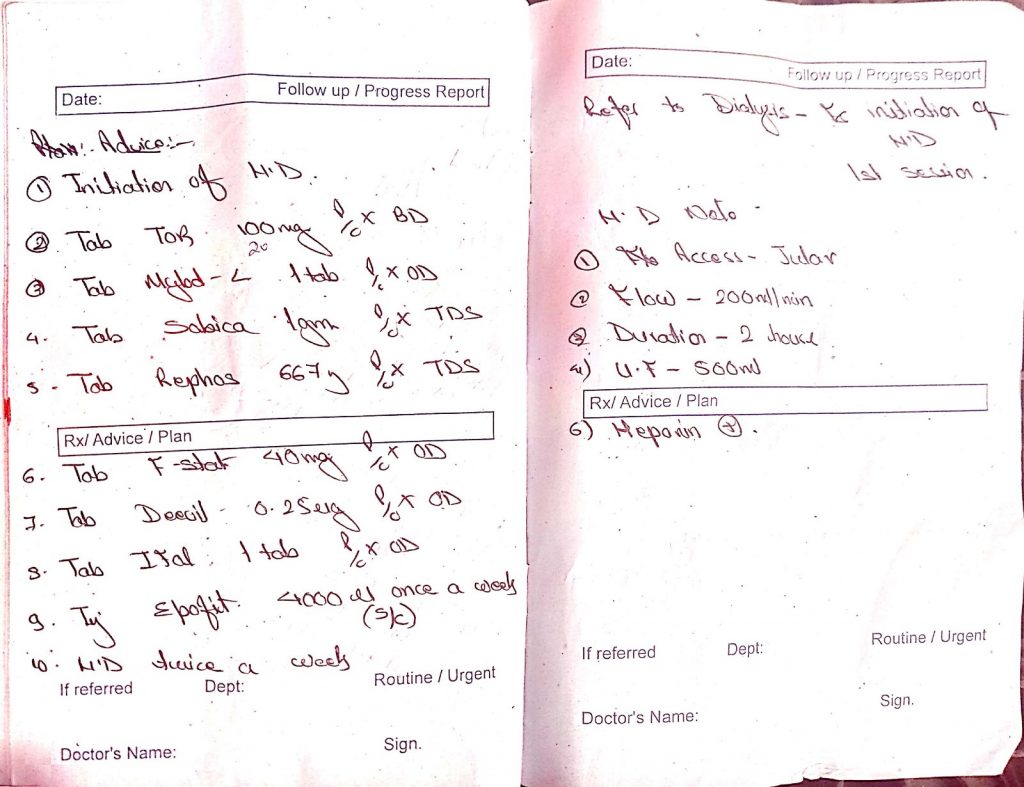 Date: Follow up / Progress Report
Advice:-
① Initiation of H.D.
② Tab TOR 100mg P/o x BD
20
③ Tab Mglod-L 1 tab P/o x OD
4. Tab Sobica 1gm P/o x TDS
5. Tab Rephos 667g P/o x TDS
Rx/ Advice / Plan
6. Tab F-stat 40mg P/o x OD
7. Tab Deecil 0.25ug P/o x OD
8. Tab Ifal 1 tab P/o x OD
9. Inj Epofit 4000 IU once a week
(S/C)
10. H.D twice a week
If referred Dept: Routine / Urgent
Doctor's Name: Sign.
Date: Follow up / Progress Report
Refer to Dialysis - for initiation of
H.D
1st session.
H.D Note -
① Access - Jular
② Flow - 200ml/min
③ Duration - 2 hours
4) U.F - 500ml
Rx/ Advice / Plan
6) Heparin (+).
If referred Dept: Routine / Urgent
Doctor's Name: Sign.